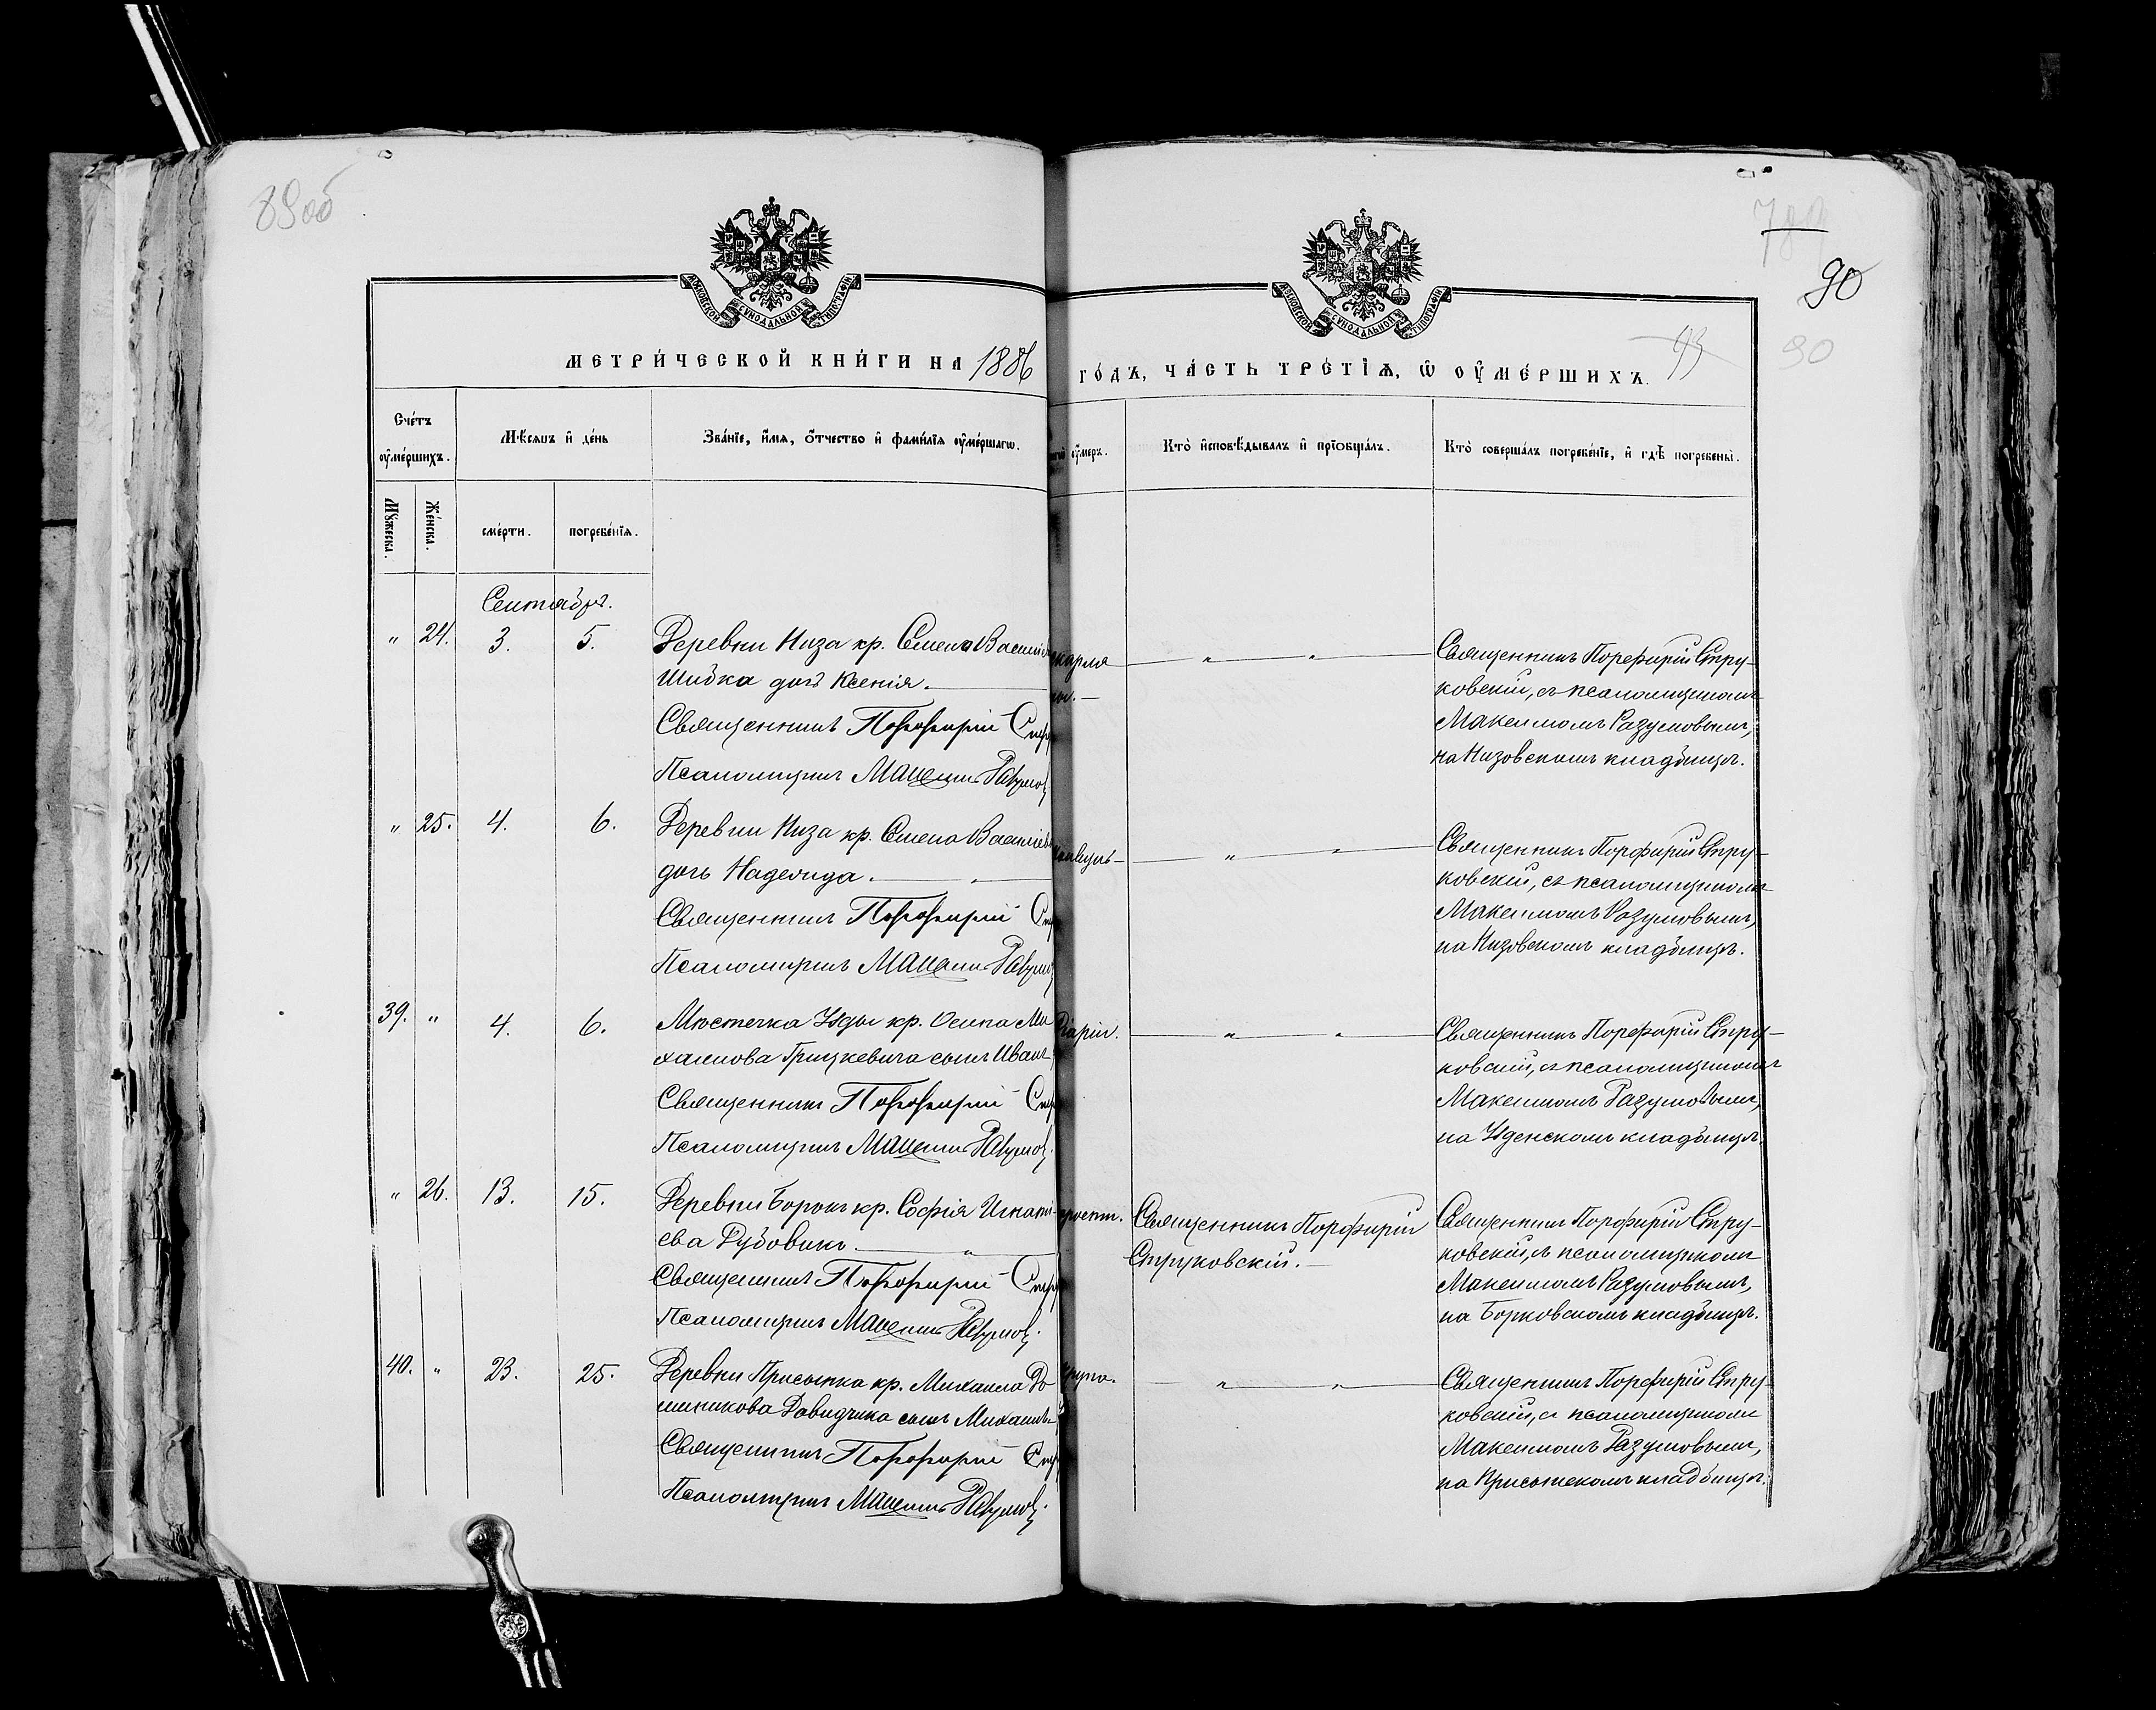 89об
90
90
93
МОСКОВСКОЙ СѴНОДАЛЬНОЙ ТИПОГРАФІИ
МОСКОВСКОЙ СѴНОДАЛЬНОЙ ТИПОГРАФІИ
МЕТРИ́ЧЕСКОЙ КНИ́ГИ НА 1886
ГО́ДЪ, ЧА́СТЬ ТРЕ́ТІѦ, Ѽ ОУ҆МЕ́РШИХЪ.
Сче́тъ оу҆ме́ршихъ.
Мꙋ́жеска.
Же́нска.
Мѣ́сяцъ и҆ де́нь
сме́рти.
погребе́нїѧ.
Зва́нїе, и҆́мѧ, ѻ҆́тчество и҆ фами́лїѧ оу҆ме́ршагѡ.
оу҆́меръ.
Кто̀ и҆сповѣ́дывалъ и҆ прїѡбща́лъ.
Кто̀ соверша́лъ погребе́нїе, и҆ гдѣ̀ погребены̀.
Сентябрь.
" 24. 3. 5. Деревни Низа кр. Семена Василіе
Шибка дочь Ксенія.
Священникъ Порфирій Стру
Псаломщикъ Максимъ Разумовъ
" "
Священникъ Порефирій Стру-
ковскій, съ псаломщикомъ
Максимомъ Разумовымъ,
на Низовскомъ кладбищѣ.
" 25. 4. 6. Деревни Низа кр. Семена Василіева
дочь Надежда. "
Священникъ Порфирій Ст
Псаломщикъ Максимъ Разумов
" "
Священникъ Порфирій Стру-
ковскій, съ псаломщикомъ
Максимомъ Разумовымъ,
на Низовскомъ кладбищѣ.
39. " 4. 6. Мѣстечка Узды кр. Осипа Ми
хаилова Грицкевича сынъ Иванъ
Священникъ Порфирій Стр
Псаломщикъ Максимъ Разумовъ.
" "
Священникъ Порефирій Стру-
ковскій, съ псаломщикомъ
Максимомъ Разумовымъ,
на Узденскомъ кладбищѣ.
" 26. 13. 15. Деревни Борокъ кр. Софія Игнаті-
ева Дубовикъ "
Священникъ Порфирій Стру
Псаломщикъ Максимъ Разумовъ.
Священникъ Порфирій
Струковскій.
Священникъ Порфирій Стру-
ковскій, съ псаломщикомъ
Максимомъ Разумовымъ,
на Борковскомъ кладбищѣ.
40. " 23. 25. Деревни Присынка кр. Михаила До
миникова Давидчика сынъ Михаилъ
Священникъ Порфирій Стр
Псаломщикъ Максимъ Разумовъ.
крупа.
" "
Священникъ Порефирій Стру-
ковскій, съ псаломщикомъ
Максимомъ Разумовымъ,
на кладбищѣ.